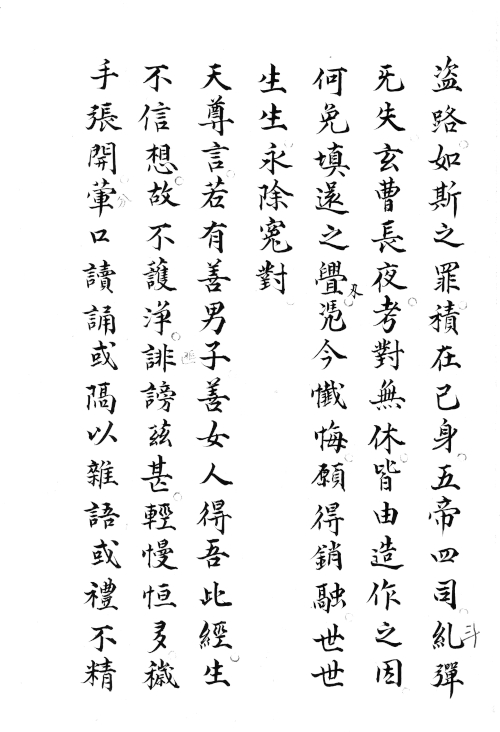 盗路如斯之罪積在已身五帝四司糺彈
旡失玄曹長夜考對無休皆由造作之因
何免填還之舋凴今懺悔願得銷融世世
生生永除寃對
天尊言若有善男子善女人得吾此經生
不信想故不護淨誹謗兹甚輕慢恒多穢
手張開葷口讀誦或隔以雜語或禮不精